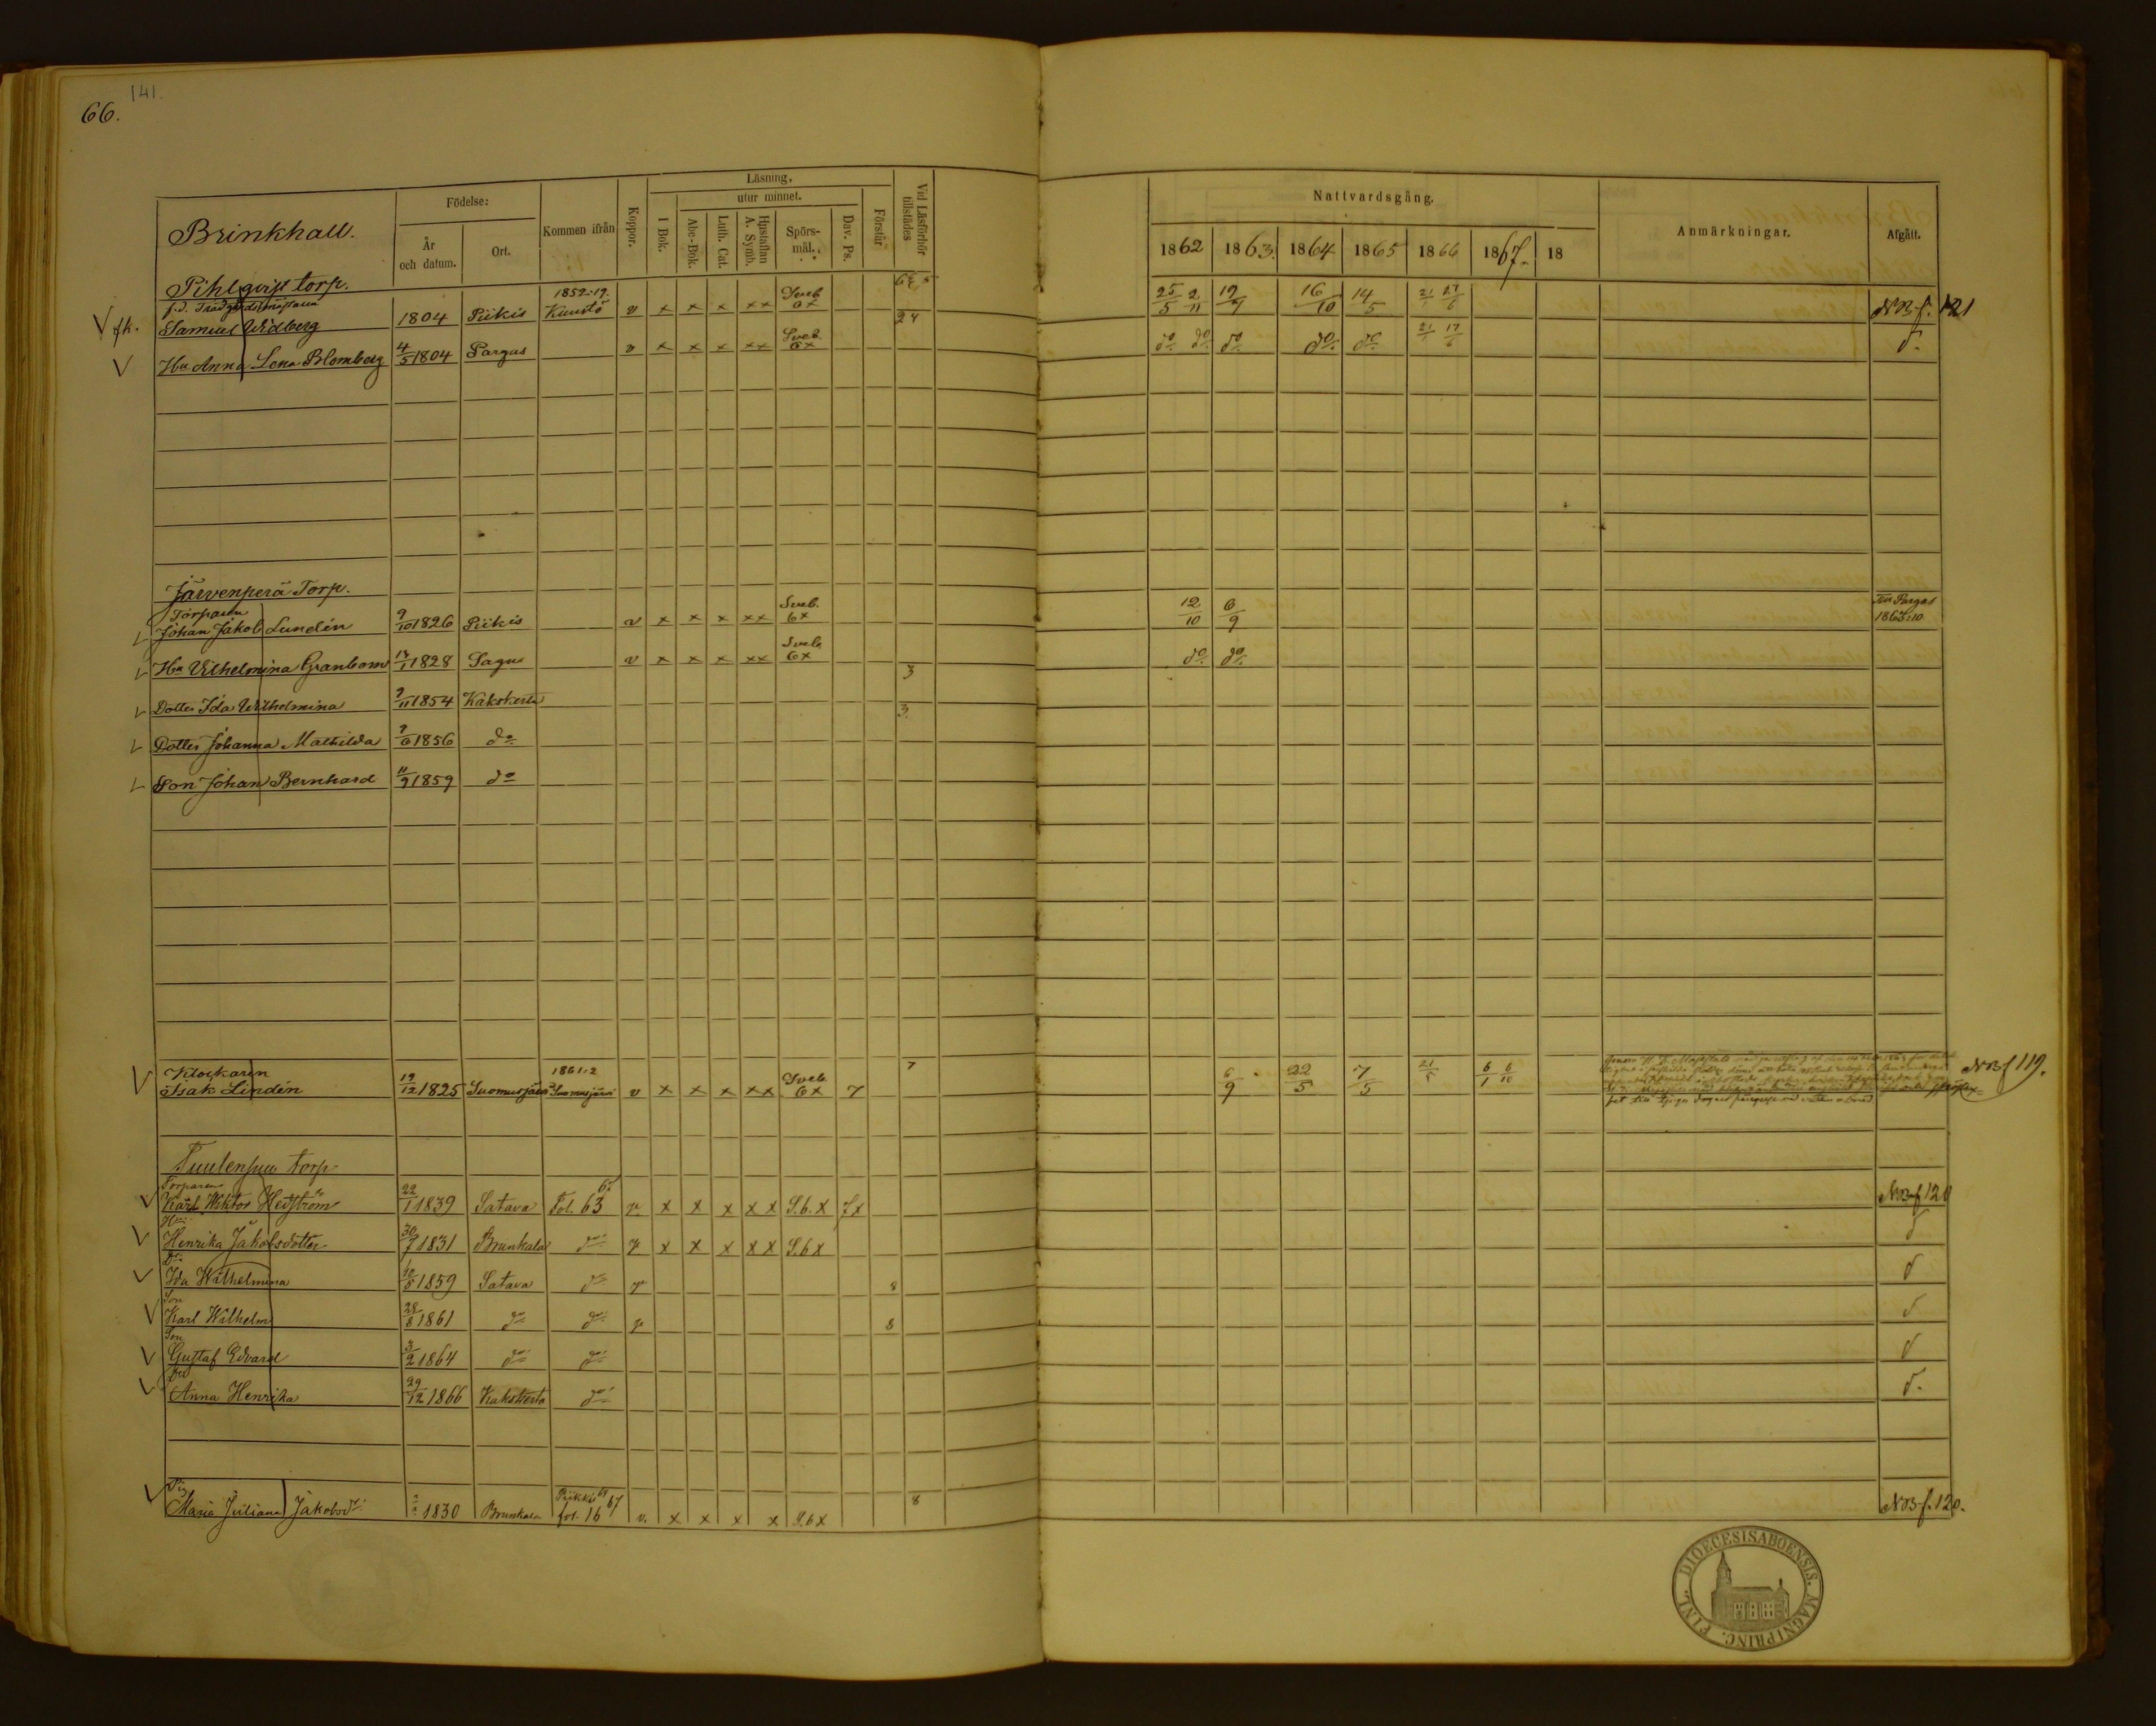 141.
66.
Brinkhall.
Födelse:
År och datum.
Ort.
Kommen ifrån
Koppor.
Läsning,
utur minnet.
I Bok.
Abc-Bok.
Luth. Cat.
Hustaflan A. Symb.
Spörs-mål.
Dav. Ps.
Förstår
Vid Läsförhör tillstädes
Nattvardsgång.
1862 1863. 1864 1865 1866 1867. 18
Anmärkningar.
Afgått.
Pihlqvist torp.
f. d.
V fk. Samuel Widberg 1804 Piikis 1852:19. Kuustö v x x x xx Sveb 6x 25/5 2/11 19/9 16/10 14/5 NB f. 121
V Hu Anna Lena Blomberg 4/5 1804 Pargas v x x x xx Sveb. 6x do do do do do
Järvenperä Torp.
Torparen
Johan Jakob Lundén 9/10 1826 Piikis v x x x xx Sveb. 6x 12/10 6/9 Till Pargas
Hu Vilhelmina Granbom 1828 Sagu v x x x xx Sveb 6x 3 do do
Dotter Ida Wilhelmina 9/11 1854 Kakskerta 3.
Dotter Johanna Mathilda 1856 do
Son Johan Bernhard 11/9 1859 do
Klockaren
V Isak Lindén 19/12 1825 Suomusjärvi 1861:2 Suomusjärvi v x x x xx Sveb 6x 7 7 6/9 22/5 7/5 6/1 6/10 NB f 119.
Tuulensuu torp
Torparen
V Karl Wiktor Hedström 22/1 1839 Satava Fol. 63 x x x x x S.6.x 7x NB f 120
Hu
V Henrika Jakobsdotter 30/7 1831 Brunkala do x x x x x S.6x
Ida Wilhelmina 1859 Satava do 8
Son
V Karl Wilhelm 28/8 1861 do do 8
Son
V Gustaf Edvard 3/2 1864 do do
Anna Henrika 29/12 1866 Kakskerta do
V Maria Juliana Jakobsdr 1830 Brunkala Piikkis fol. 16 67 v. x x x x S.6x 8 NB f. 120.
FINL. DIOECESISABOENSIS. MAGNIPRINC.